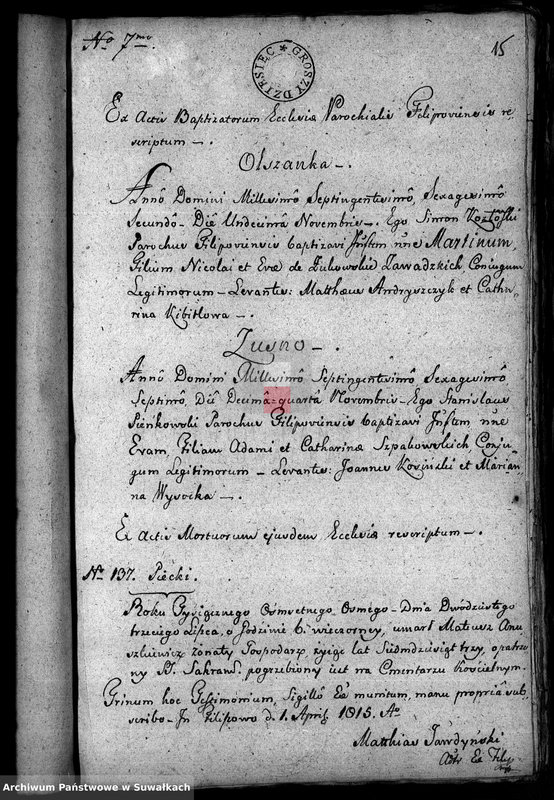 No 7mo.
15
GROSZY DZIESIĘĆ
Ex Actis Baptizatorum Ecclesiæ Parochialis Filipoviensis re-
scriptum –.
Olszanka –.
Annô Domini Millesimô Septingentesimô, Sexagesimô
Secundô – Diê Undecimâ Novembris –. Ego Simon
Parochus Filipoviensis baptizavi Infstem nne Martinum,
Filium Nicolai et Evæ de Żukowskie Zawadzkich Coniugum
Legitimorum – Levantes: Matthæus Andryszczyk et Catha-
rina Kibitlowa –.
Zusno –.
Annô Domini Millesimô Septingentesimô Sexagesimô
Septimô, Diê Decimâ-quartâ Novembris – Ego Stanislaus
Sienkowski Parochus Filipoviensis baptizavi Infstem nne
Evam, Filiam Adami et Catharinæ Szpakowskich, Conju-
gum Legitimorum – Levantes: Joannes Kosinski et Marian-
na Wysocka –.
Ex Actis Mortuorum ejusdem Ecclesiæ rescriptum –.
No 137. Piecki.
Roku Tysiącznego Osmsetnego, Osmego – Dnia Dwudziestego
trzeciego Lipca, o godzinie 6. wieczorney, umarł Mateusz Anu-
szkiewicz żonaty Gospodarz, żyiąc lat Siedmdziesiąt trzy, opatrzo-
ny S. Sakram. pogrzebiony iest na Cmentarzu Kościelnym.
Qrinum hoc Testimonium, Sigillô Eæ munitum, manu propriâ sub-
scribo. In Filipowo d. 1. April 1815. Ao
Matthias Jawdyński